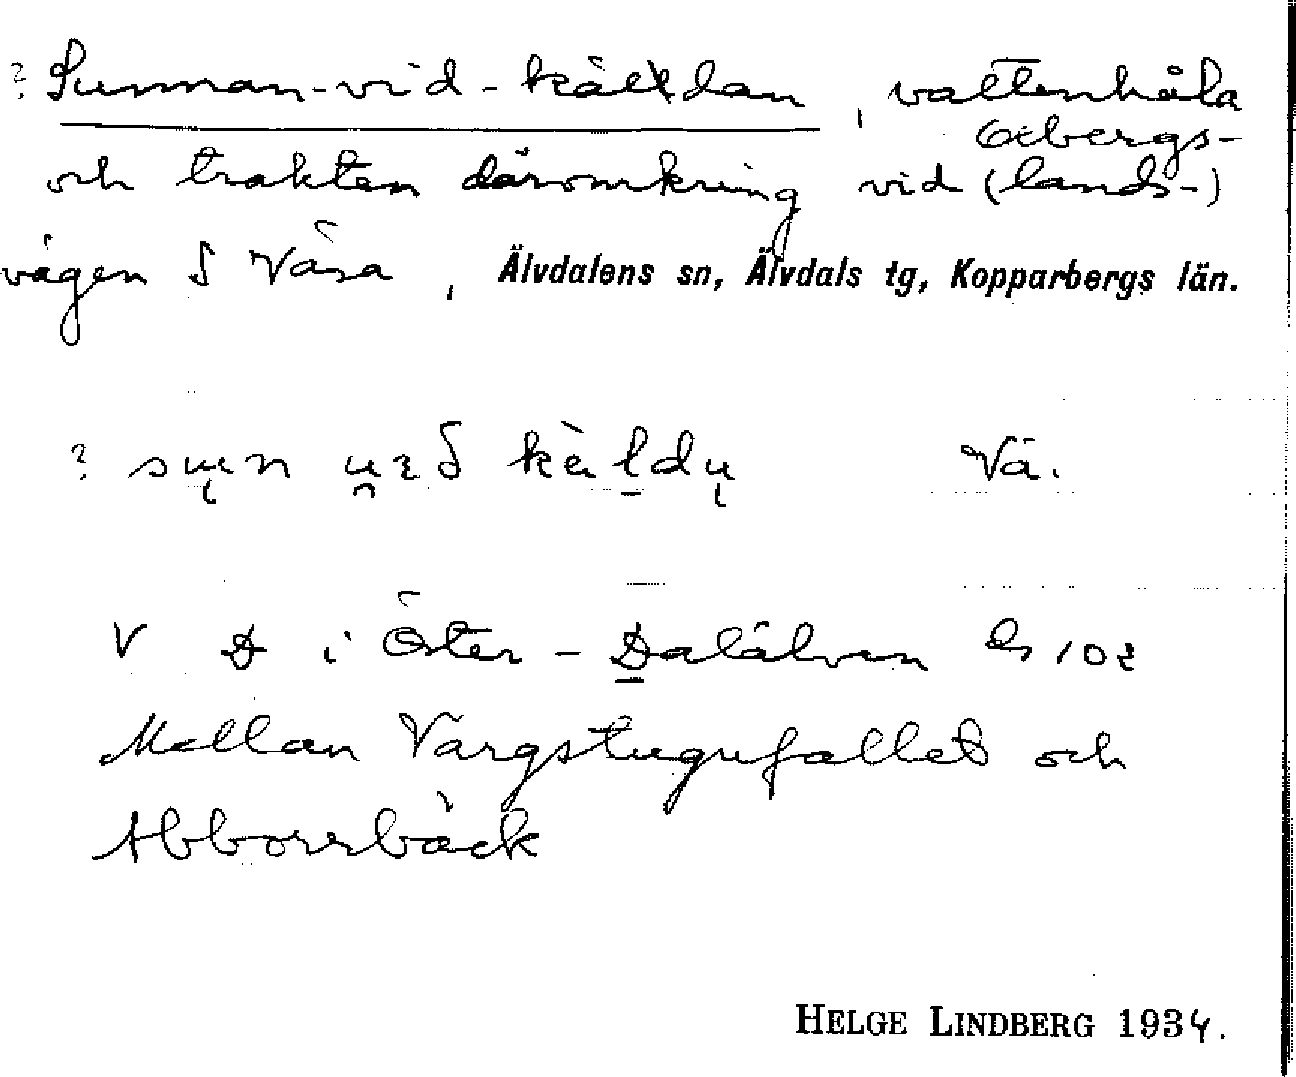 ? Sunnan-vid-källdan, vattenhåla
och trakten däromkring vid (lands-)
vägen S Våsa, Älvdalens sn, Älvdals tg, Kopparbergs län.
Vä.
V D i Öster-Dalälven
Mellan Vargstugufallet och
Abborrbäck
HELGE LINDBERG 1934.